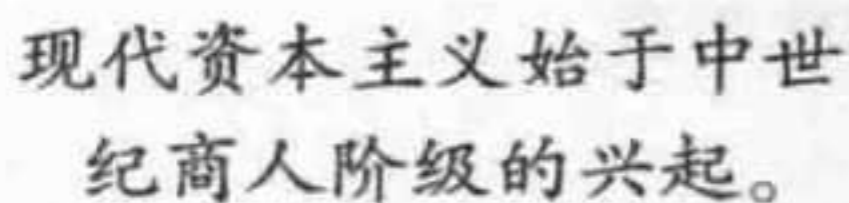 现代资本主义始于中世
纪商人阶级的兴起。